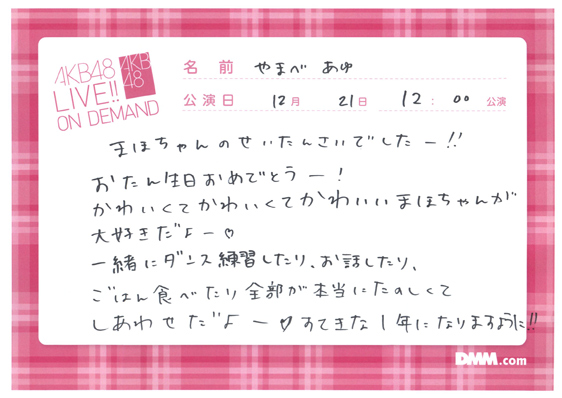 AKB48
LIVE!!
ON DEMAND
AKB
48
名前 やまべ あゆ
公演日 12月 21日 12:00 公演
まほちゃんのせいたんさいでしたー!!
おたん生日おめでとうー!
かわいくてかわいくてかわいいまほちゃんが
大好きだよー♡
一緒にダンス練習したり、お話したり、
ごはん食べたり全部が本当にたのしくて
しあわせだよー♡すてきな1年になりますように!!
DMM.com